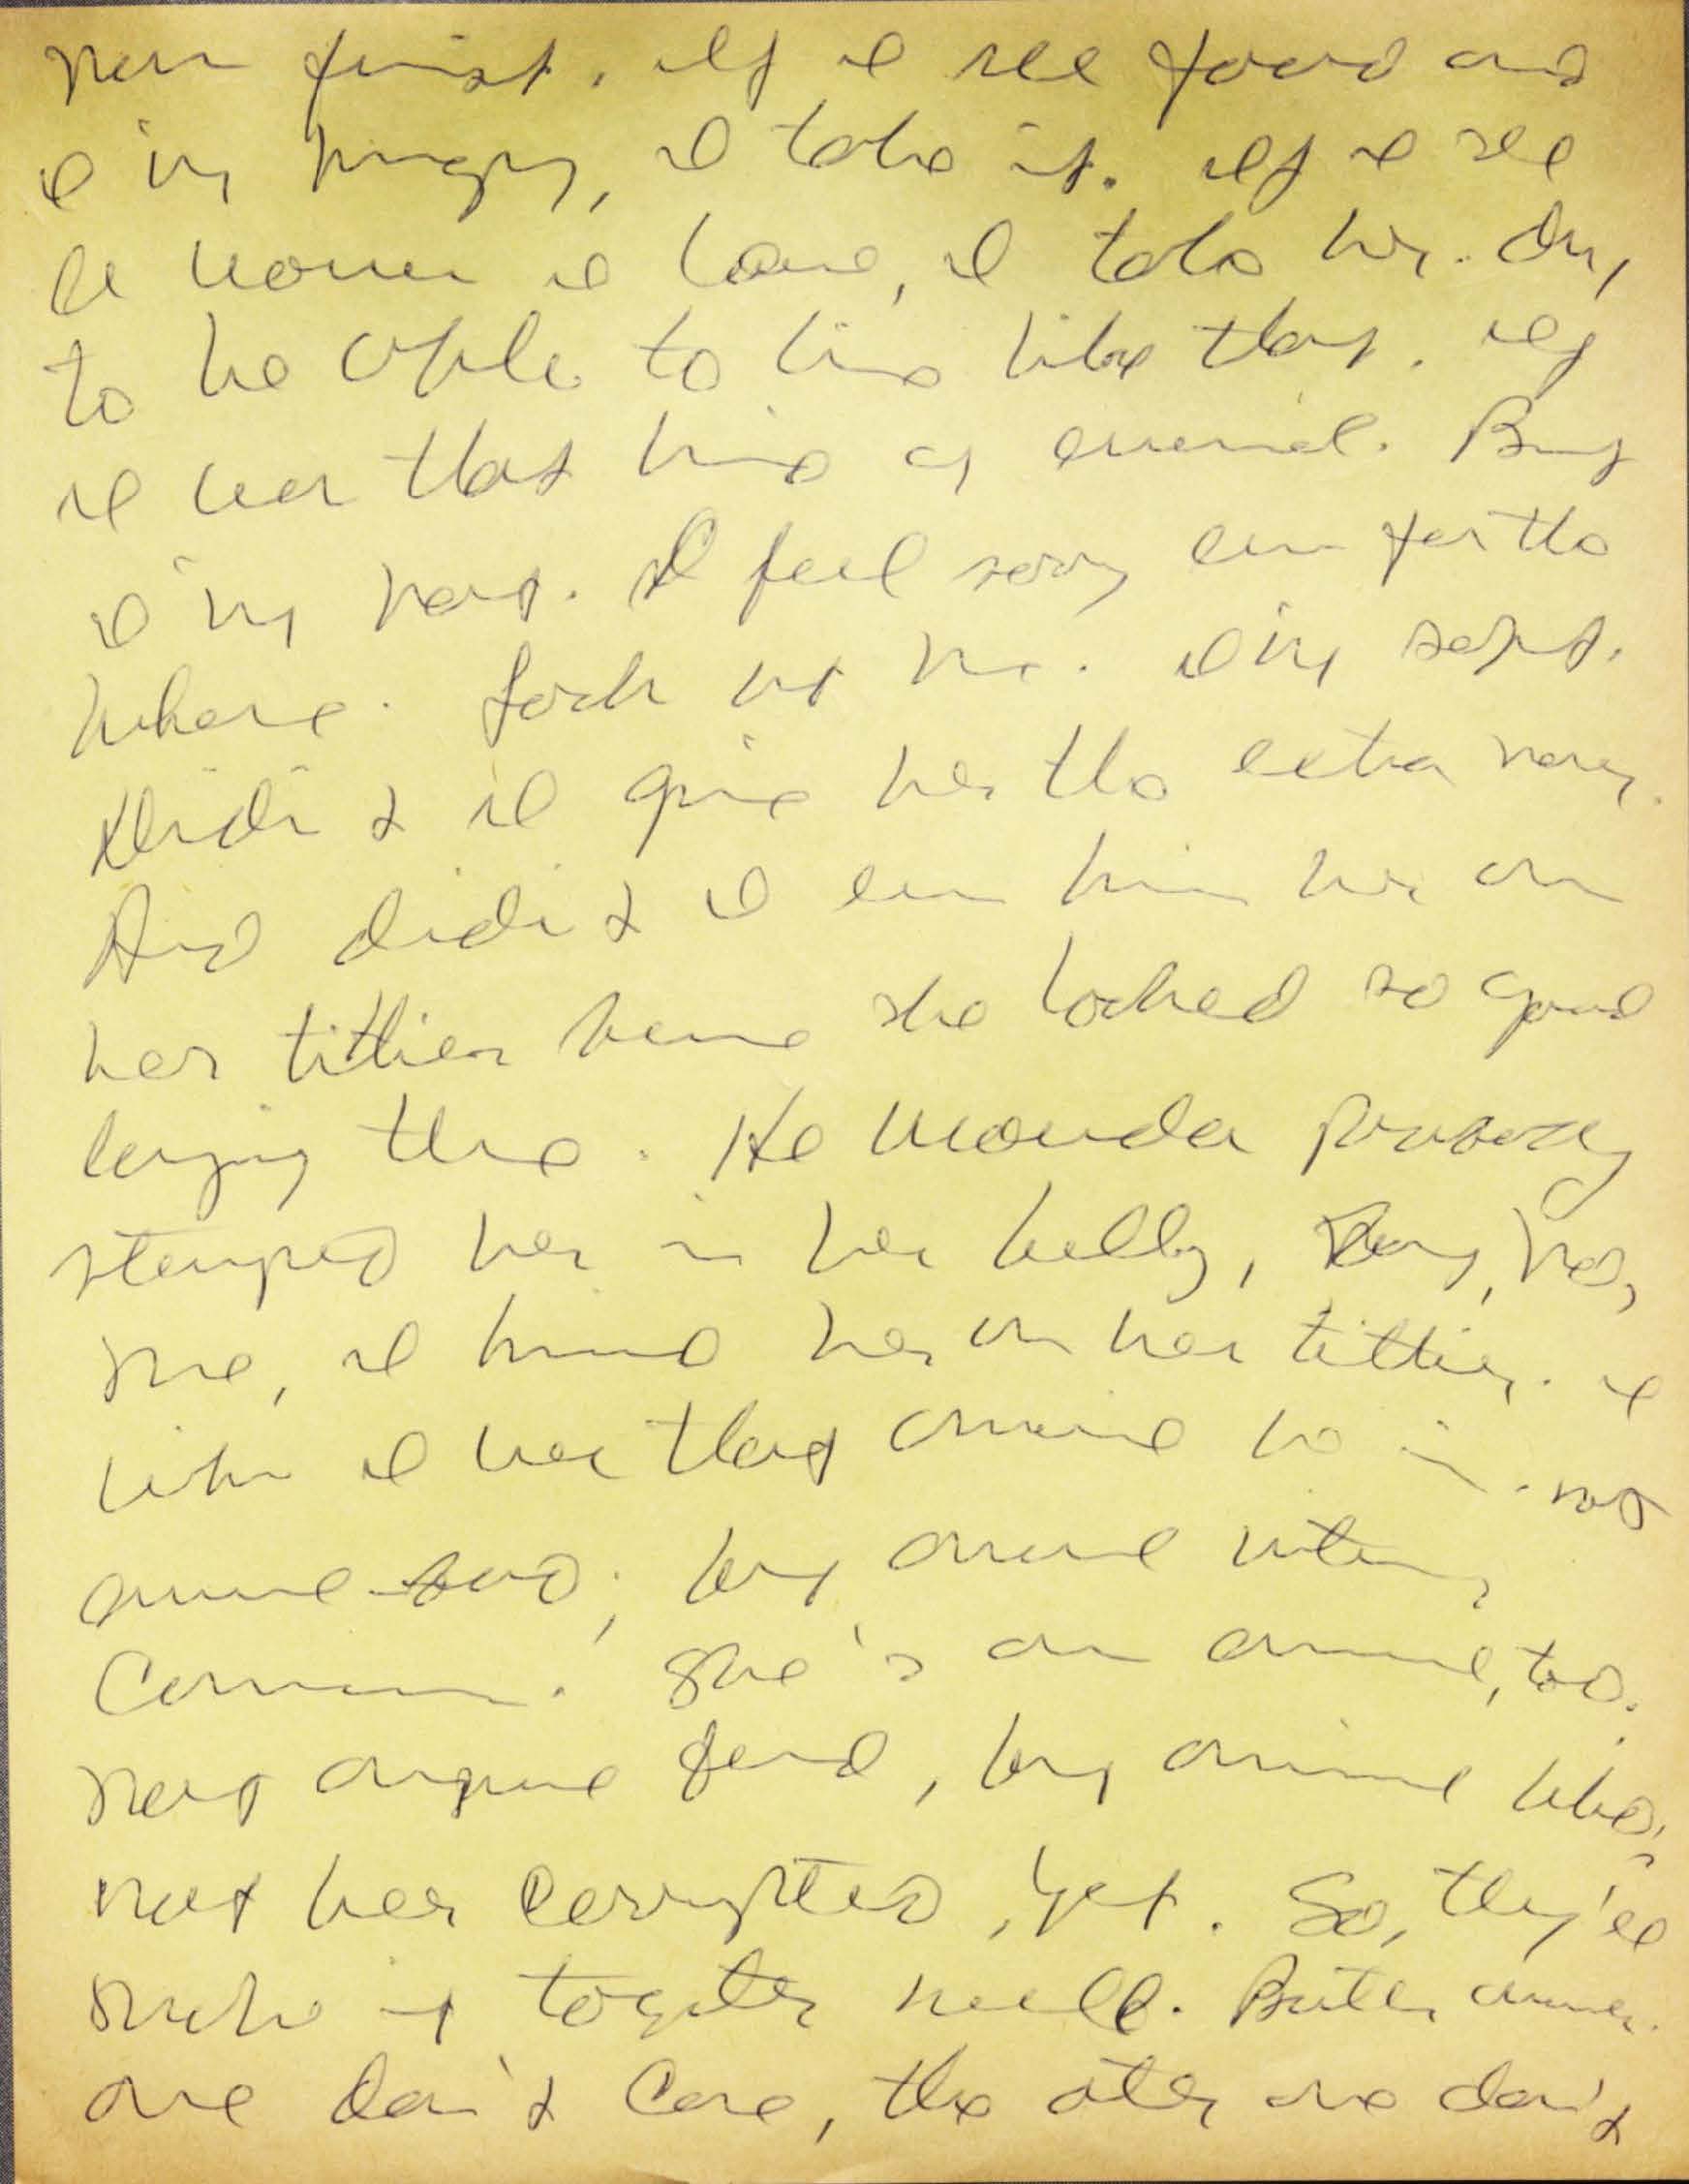 first. If I see food and
I'm hungry, I take it. If I see
a woman I want, I take her. Oh,
to be able to live like that. If
I was that kind of animal. But
I'm not. I feel sorry even for the
whore. Look at me. I'm soft.
Didn't I give her the extra money.
And didn't I even kiss her on
her titties because she looked so good
laying there. He woulda probably
stomped her in her belly, But, no,
me, I kissed her on her titties. I
wish I was that animal he is. not
animal bad; but animal
She's an animal, too.
not animal, but animal who's
not been corrupted, yet. So, they'll
make it together well. Both animals.
one don't care, the other one don't